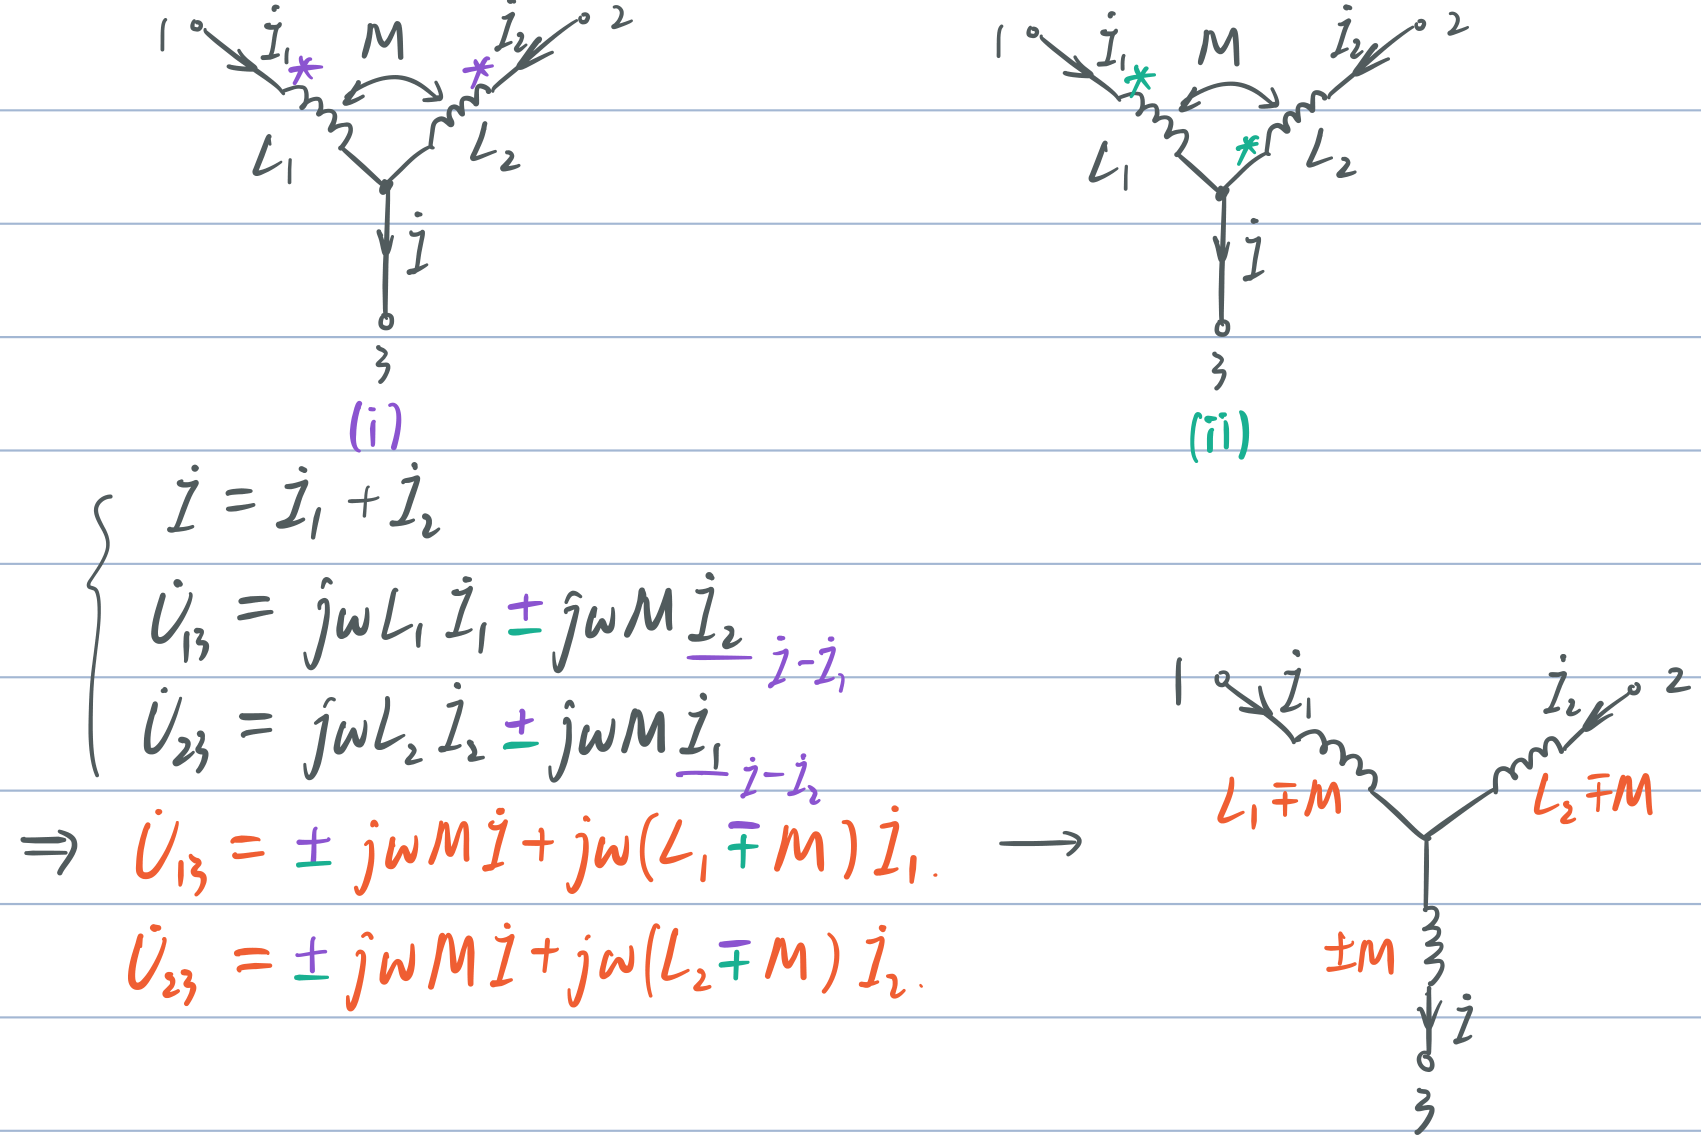 1 İ₁ * M * İ₂ 2
L₁ L₂
İ
3
(i)
1 İ₁ * M İ₂ 2
L₁ * L₂
İ
3
(ii)
İ = İ₁ + İ₂
U̇₁₃ = jωL₁ İ₁ ± jωM İ₂
İ-İ₁
U̇₂₃ = jωL₂ İ₂ ± jωM İ₁
İ-İ₂
⇒ U̇₁₃ = ± jωM İ + jω(L₁ ∓ M) İ₁. →
U̇₂₃ = ± jωM İ + jω(L₂ ∓ M) İ₂.
1 İ₁ İ₂ 2
L₁∓M L₂∓M
±M
İ
3